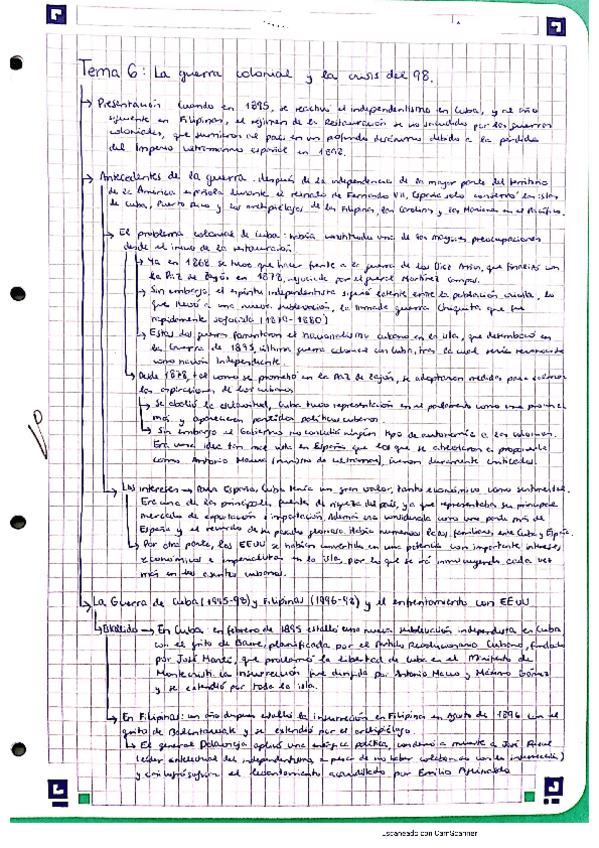 Tema 6: La guerra colonial y la crisis del 98.
→ Presentación Cuando en 1895, se reactivó el independentismo en Cuba, y al año
siguiente en Filipinas, el régimen de la Restauración se vio sacudido por las guerras
coloniales, que sumieron al país en un profundo derrumbe debido a la pérdida
del Imperio ultramarino español en 1898.
→ Antecedentes de la guerra: después de la independencia de la mayor parte del territorio
de la América española durante el reinado de Fernando VII, España solo conservó las islas
de Cuba, Puerto Rico y los archipiélagos de las Filipinas, las Carolinas y las Marianas en el Pacífico.
→ El problema colonial de Cuba: había constituido una de las mayores preocupaciones
desde el inicio de la restauración.
→ Ya en 1868 se tuvo que hacer frente a la guerra de los Diez Años, que finalizó con
la Paz de Zanjón en 1878, por el general Martínez Campos.
→ Sin embargo, el espíritu independentista siguió latente entre la población criolla, lo
que llevó a una nueva sublevación, la llamada guerra Chiquita que fue
rápidamente sofocada (1879-1880)
→ Estas dos guerras fomentaron el nacionalismo cubano en la isla, que desembocó en
la Guerra de 1895, última guerra colonial con Cuba, tras la cual sería reconocida
como nación independiente.
→ Desde 1878, tal como se prometió en la Paz de Zanjón, se adoptaron medidas para
las aspiraciones de los cubanos
→ Se abolió la esclavitud, Cuba tuvo representación en el parlamento como una provincia
más y aparecieron partidos políticos cubanos.
→ Sin embargo el Gobierno no concedió ningún tipo de autonomía a las colonias.
Era una idea tan mal vista en España que los que se atrevieron a proponerla
como Antonio Maura (ministro de Ultramar), fueron duramente criticados.
→ Los intereses → Para España, Cuba tenía un gran valor, tanto económico como sentimental.
Era una de las principales fuentes de riqueza del país, ya que representaba su principal
mercado de exportación e importación. Además era considerada como una parte más de
España y el recuerdo de su pasado glorioso. Había numerosos lazos familiares entre Cuba y España.
→ Por otra parte, los EEUU se habían convertido en una potencia con importantes intereses
económicos e imperialistas en la isla, por lo que se irá inmiscuyendo cada vez
más en los asuntos cubanos.
→ La Guerra de Cuba (1895-98) y Filipinas (1896-98) y el enfrentamiento con EEUU
→ Estallido → En Cuba: en febrero de 1895 estalló una nueva sublevación independentista en Cuba
con el grito de Baire, planificada por el Partido Revolucionario Cubano, fundado
por José Martí, que proclamó la libertad de Cuba en el Manifiesto de
Montecristi. La insurrección fue dirigida por Antonio Maceo y Máximo Gómez
y se extendió por toda la isla.
→ En Filipinas: un año después estalló la insurrección en Filipinas en Agosto de 1896 con el
grito de Balintawak y se extendió por el archipiélago.
→ El general Polavieja aplicó una enérgica política, condenó a muerte a José Rizal
(líder intelectual del independentismo, a pesar de no haber colaborado con la insurrección)
y el levantamiento acaudillado por Emilio Aguinaldo
Escaneado con CamScanner